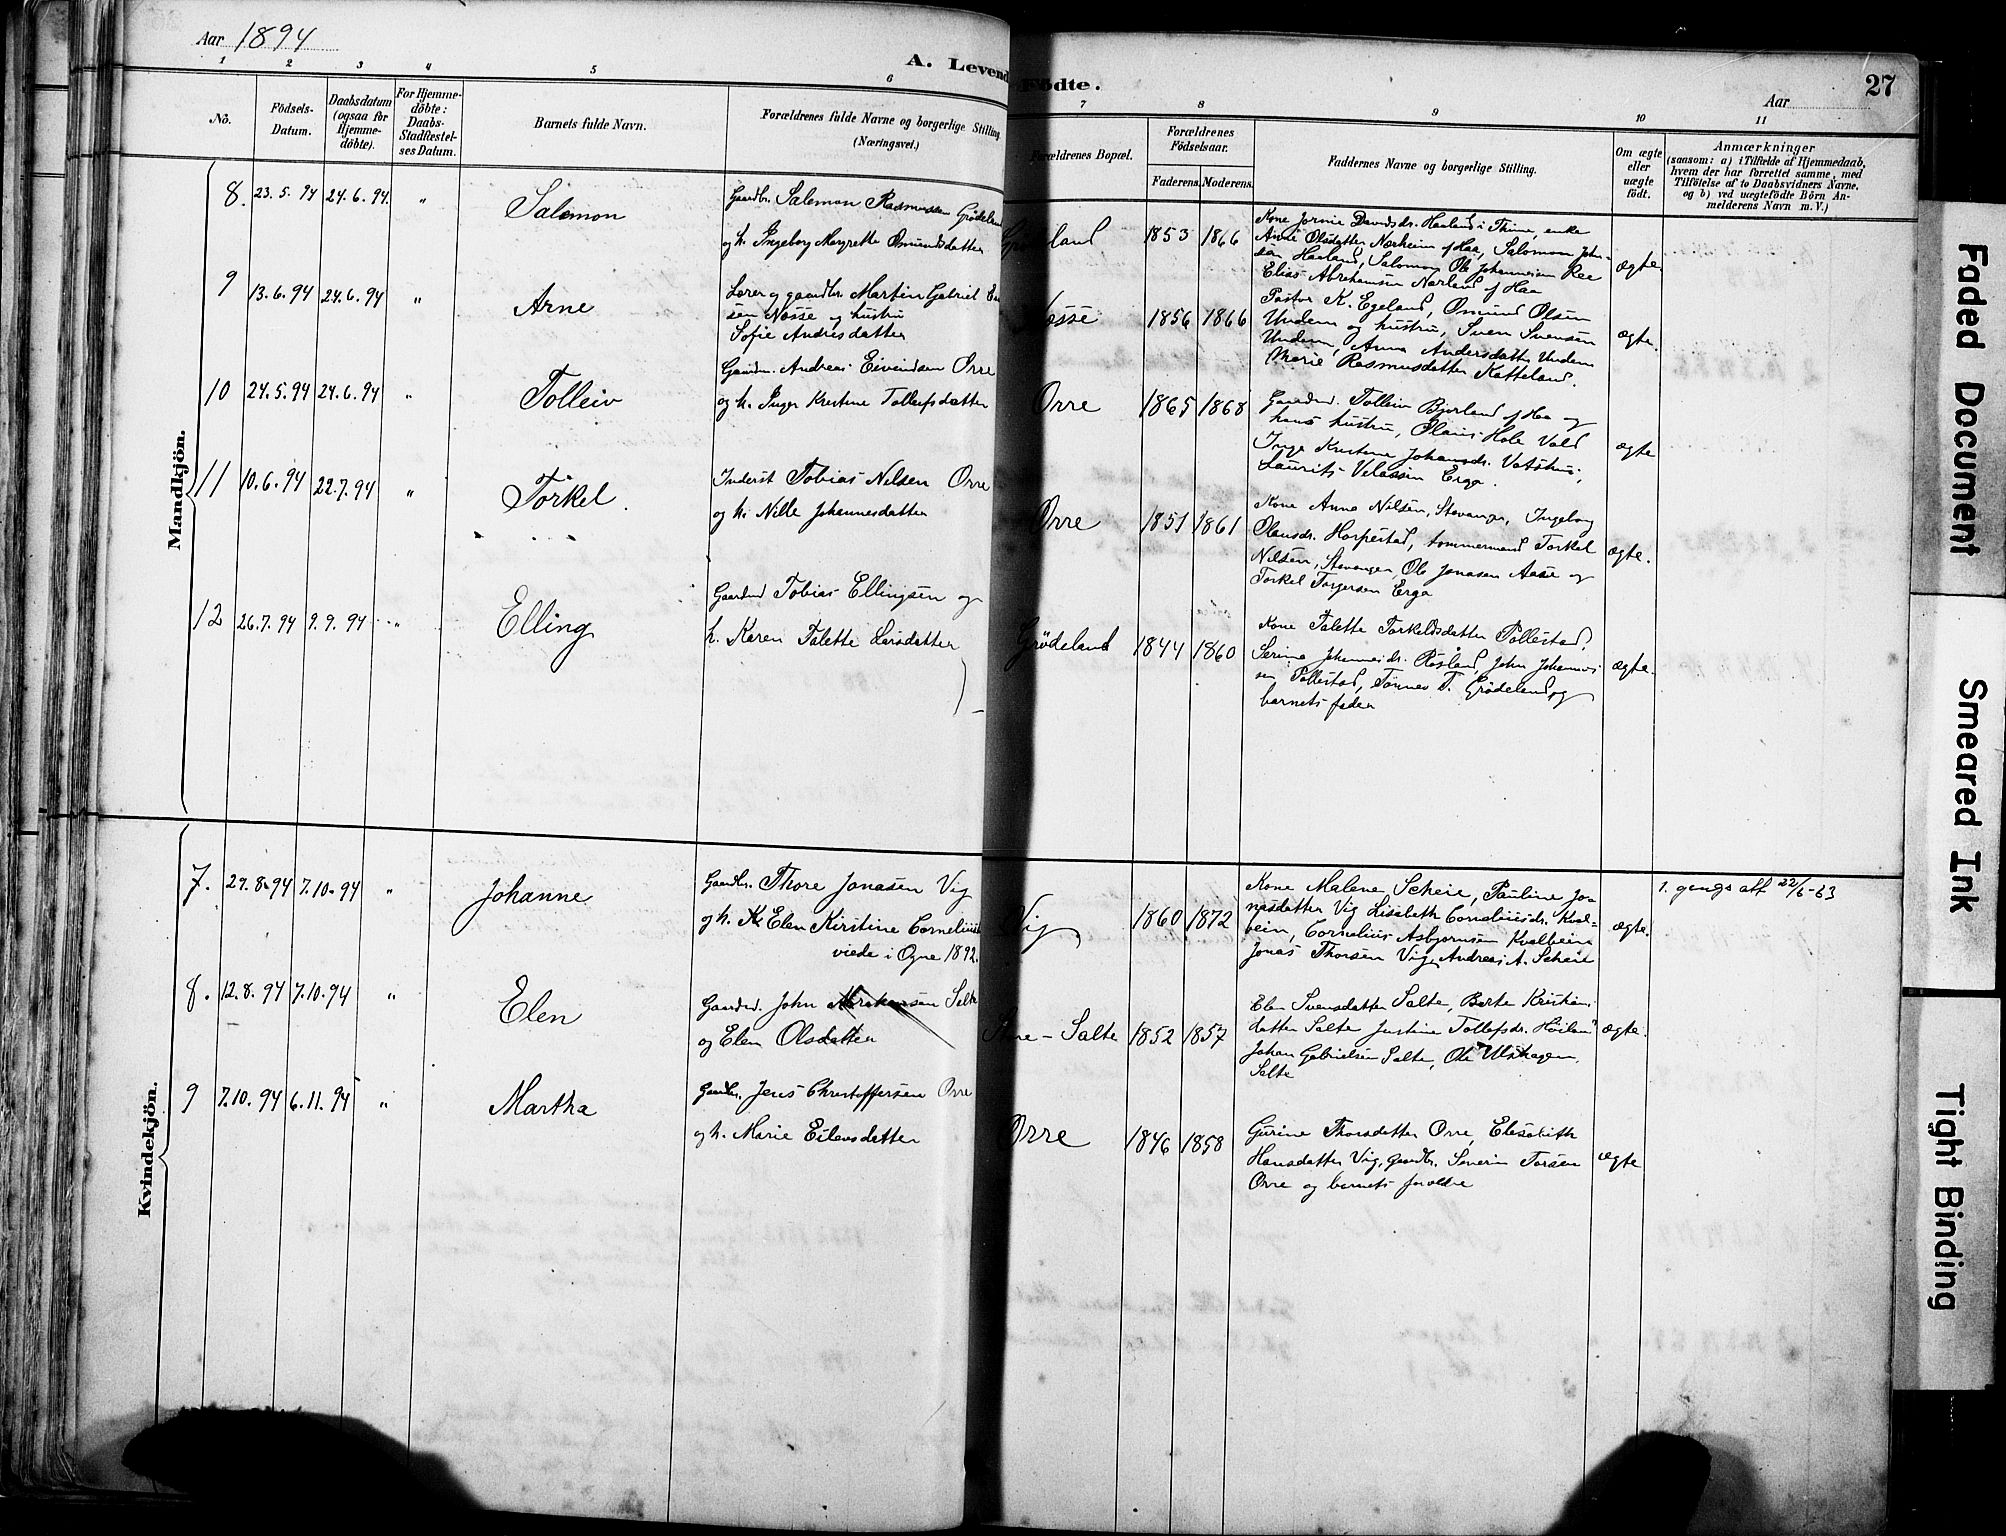 Aar 1894
A. Levend Fødte.
Aar
27
1 2 3 4 5 6 7 8 9 10 11
Nô.
Födsels-Datum.
Daabsdatum (ogsaa for Hjemme-döbte).
For Hjemme-döbte: Daabs-Stadfæstel-ses Datum.
Barnets fulde Navn.
Forældrenes fulde Navne og borgerlige Stilling (Næringsvei.)
Forældrenes Bopæl.
Forældrenes Födselsaar.
Faderens. Moderens.
Faddernes Navne og borgerlige Stilling.
Om ægte eller uægte födt.
Anmærkninger
(saasom: a) i Tilfælde af Hjemmedaab, hvem der har forrettet samme, med Tilföielse af to Daabsvidners Navne, og b) ved uægtefödte Börn An-melderens Navn m. V.)
Mandkjön.
8. 23.5.94 24.6.94. " Salomon
Gaardbr. Salemon Rasmussen Grödeland
og h. Ingeborg Margrethe Osmundsdatter
1853 1866
Kone Jorine Davidsdr. Haaland i Thime, enke
Anne Olsdatter Nærheim af Haa, Salomon John-
sen Haaland, Salomon Ole Johannesen Ree
Elias Abrahamsen Nærland af Haa
ægte
9 13.6.94 24.6.94 " Arne
Lærer og gaardbr. Martin Gabriel
sen Nosse og hustru
Sofie Andersdatter
Nosse 1856 1866
Pastor K. Egeland, Osmund Olsen
Undem og hustru, Sven Svensen
Undem, Anna Andersdatter Undem
Marie Rasmusdatter Katteland.
ægte.
10 24.5.94 24.6.94 " Tolleiv
Gaardm. Andreas Eivindsen Orre
og h. Inger Kristine Tollefsdatter
Orre 1865 1868
Gaardm. Tolleiv Bjorland af Haa og
hans hustru, Olaus Hole Vold
Inge Kristine Johansdr. Vatshus,
Laurits Erga.
ægte
11 10.6.94 22.7.94 " Torkel.
Inderst Tobias Nilsen Orre
og h. Nille Johannesdatter
Orre 1851 1861
Kone Anna Nilsen, Stavanger, Ingeborg
Olausdr. Horpestad, tømmermand Torkel
Nilsen, Stavanger, Ole Jonasen Aase og
Torkel Torgersen Erga
ægte.
12 26.7.94 9.9.94 " Elling
Gaardmd Tobias Ellingsen og
h. Karen Talette Larsdatter
Grödeland 1844 1860
Kone Talette Torkelsdatter Pollestad,
Serina Johannesdr. Rosland, John Johannes-
sen Pollestad, Tønnes T. Grødeland og
barnets fader
ægte.
Kvindekjön.
7. 27.8.94 7.10.94 " Johanne
Gaardbr. Thore Jonasen Vig
og h. Elen Kirstine Cornelius
viede i Ogne 1892.
Vig 1860 1872
Kone Malene Scheie, Pauline Jo-
nasdatter Vig Lisabeth Corneliusdr. Kval-
bein, Cornelius Asbjornsen Kvalbein
Jonas Thorsen Vig, Andreas A. Scheie
ægte.
1. gangs att 22/6-63
8. 12.8.94 7.10.94 " Elen
Gaardmd. John Salte
og Elen Olsdatter
Store-Salte 1852 1857
Elen Svensdatter Salte, Berte Kristian
datter Salte Justine Tollefsdr. Höiland
Johan Gabrielsen Salte, Ole Ulvhagen,
Salte
ægte.
9 7.10.94 6.11.94 " Martha
Gaardbr. Jens Christoffersen Orre
og h. Marie Eilevsdatter
Orre 1846 1858
Gurine Thorsdatter Orre, Elisabeth
Hansdatter Vig, Gaardbr. Severin Torsen
Orre og barnets forældre
ægte
Faded Document
Smeared Ink
Tight Binding